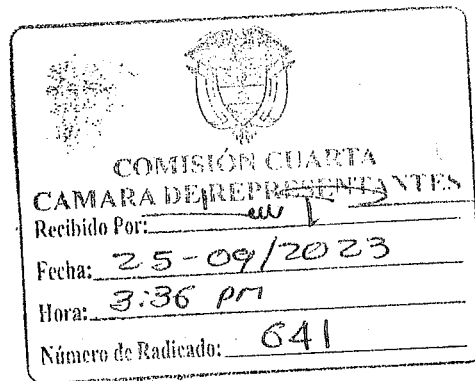 COMISIÓN CUARTA
CAMARA DE REPRESENTANTES
Recibido Por:
Fecha: 25-09/2023
Hora: 3:36 pm
Número de Radicado: 641